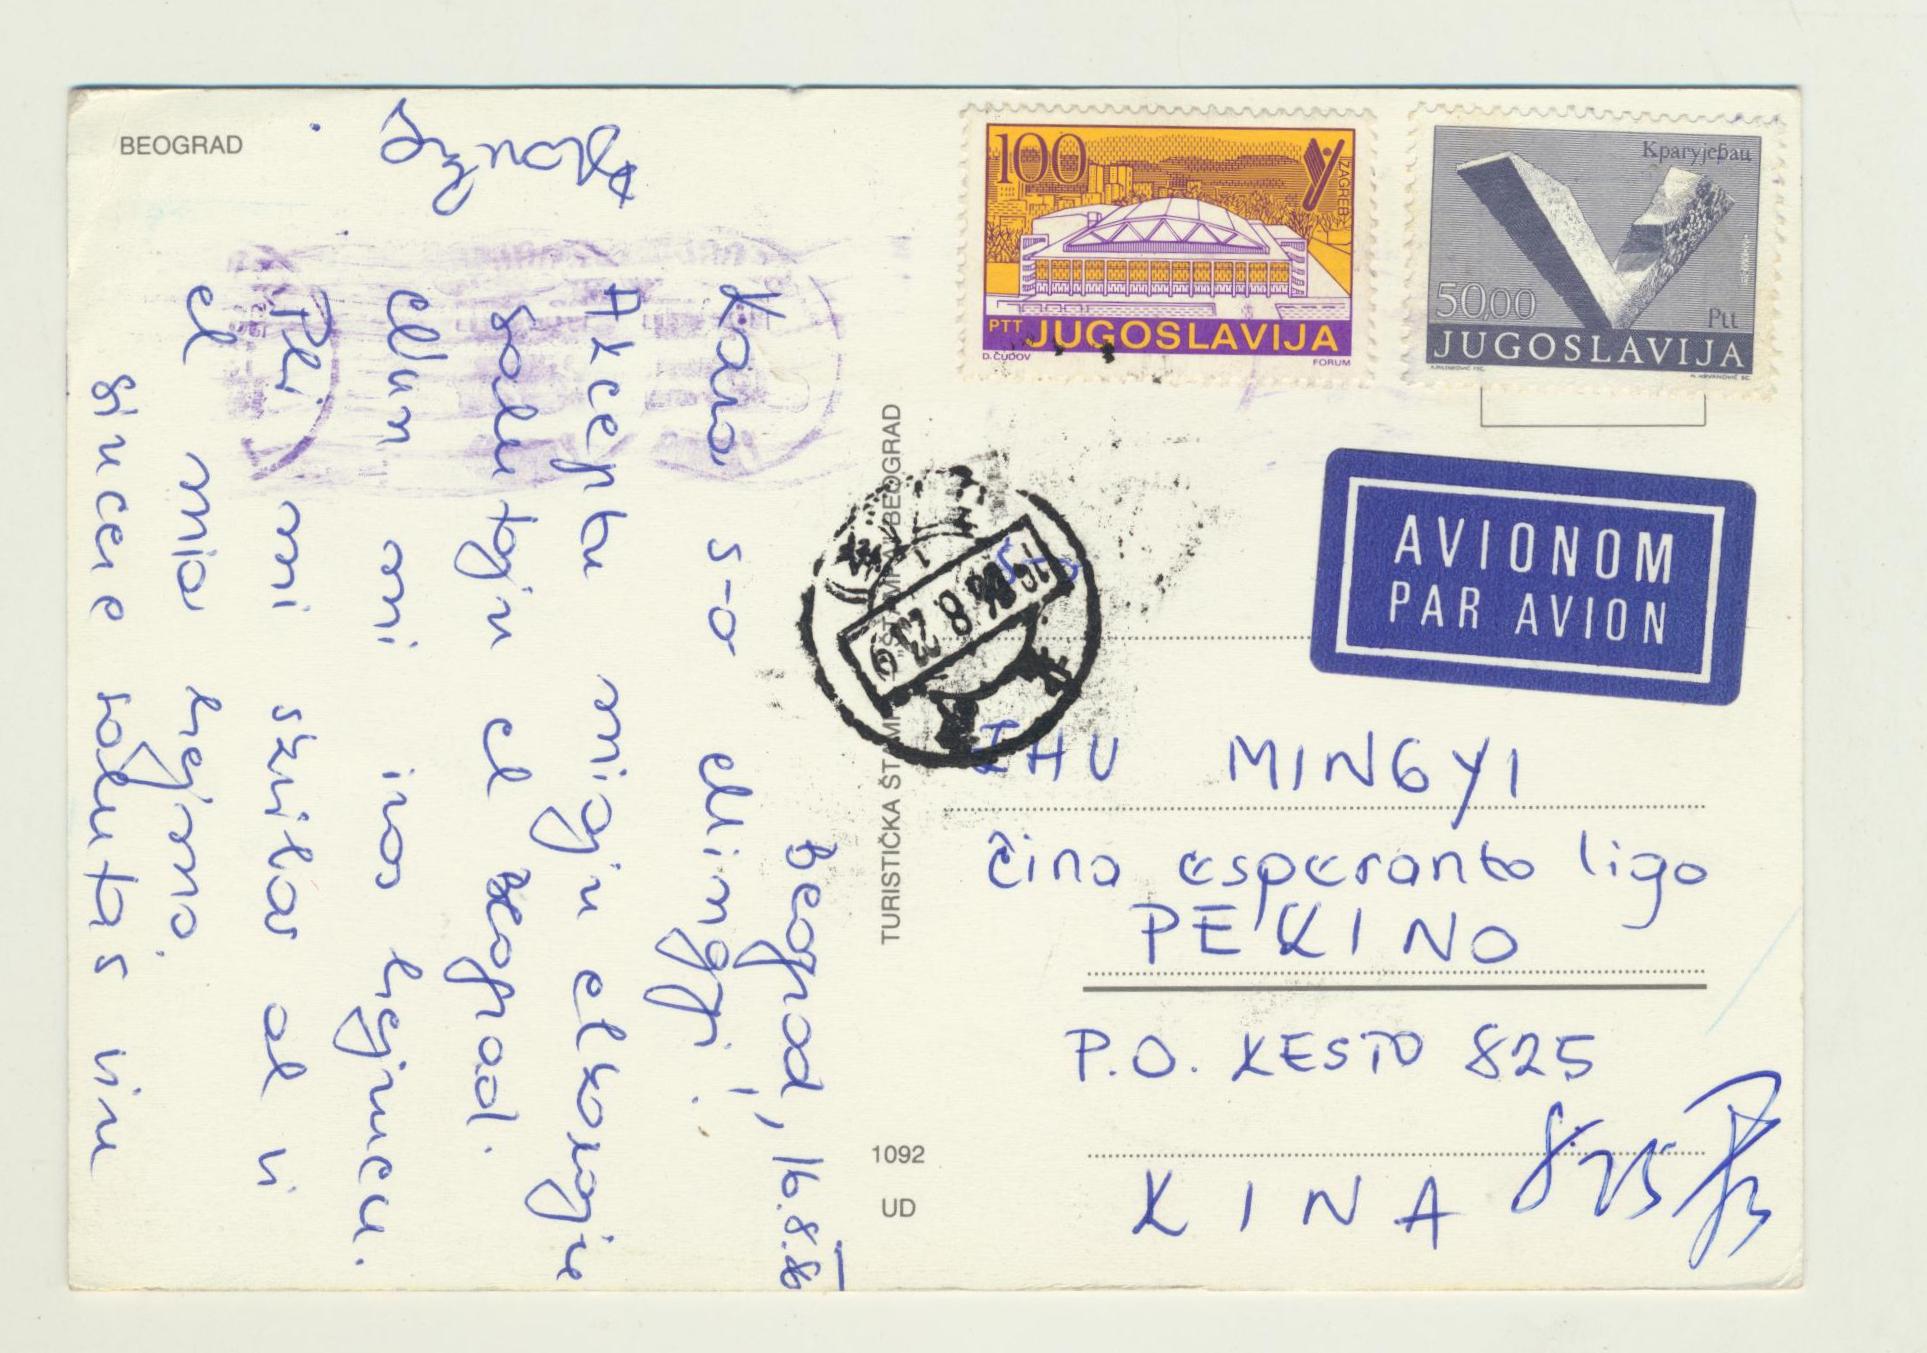 BEOGRAD
Beograd, 16.8.86
Kara s-o
Akceptu miajn elkorajn
salutojn el Beograd.
mi iros hejmen.
mi skribos al vi
el mia hejmo.
Sincere salutas vin
TURISTIČKA ŠTAMPA BEOGRAD
1092
UD
100
ZAGREB
PTT JUGOSLAVIJA
D. ČUDOV
FORUM
Крагујевац
50,00
Ptt
JUGOSLAVIJA
AVIONOM
PAR AVION
ZHU MINGYI
Ĉina esperanto ligo
PEKINO
P.O. KESTO 825
KINA
825